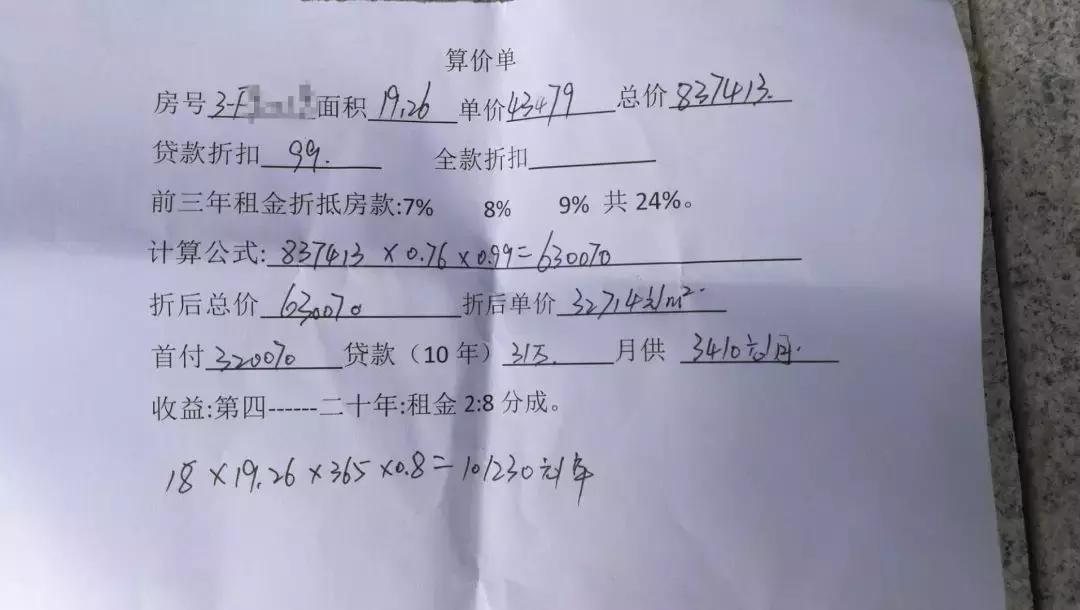 算价单
房号 3-F 面积 19.26 单价 43479 总价 837413.
贷款折扣 99. 全款折扣
前三年租金折抵房款:7% 8% 9% 共 24%。
计算公式: 837413 × 0.76 × 0.99 = 630070
折后总价 630070 折后单价 32714元/m²
首付 320070 贷款（10 年） 31万. 月供 3410元/月.
收益:第四------二十年:租金 2:8 分成。
18 × 19.26 × 365 × 0.8 = 101230元/年